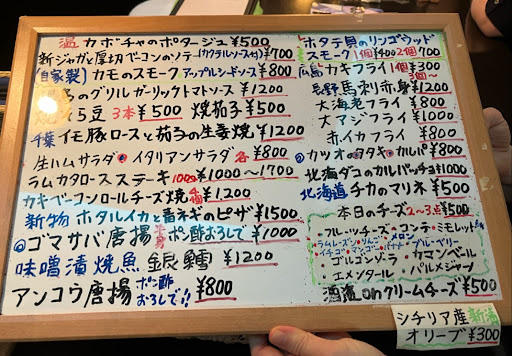 温 カボチャのポタージュ ¥500
新ジャガと厚切ベーコンのソテー(カクテルソース付) ¥700
(自家製) カモのスモーク アップルシードソース ¥800
のグリルガーリックトマトソース ¥1200
豆 3本 ¥500 焼茄子 ¥500
千葉 イモ豚ロースと茄子の生姜焼 ¥1200
生ハムサラダ イタリアンサラダ 各 ¥800
ラムカタロースステーキ 100g ¥1000〜1700
カキベーコンロールチーズ焼 ¥1200
新物 ホタルイカと青ネギのピザ ¥1500
ゴマサバ唐揚 半身 ポン酢おろしで ¥1000
味噌漬焼魚 銀鱈 ¥1200
アンコウ唐揚 ポン酢おろしで!! ¥800
ホタテ貝のリンゴウッド
スモーク 1個 ¥400 2個 700
広島 カキフライ 1個 ¥300
3個〜
長野 馬刺赤身 ¥1200
大海老フライ ¥800
大アジフライ ¥1000
赤イカフライ ¥800
カツオのタタキ・カルパ ¥800
北海ダコのカルパッチョ ¥1000
北海道 チカのマリネ ¥500
本日のチーズ 2〜3点 ¥500
・フルーツチーズ・コンテ・ミモレット
ラムレーズン・リンゴ・メロン
イチゴ・マンゴー・バナナ・ブルーベリー
・ゴルゴンゾーラ ・カマンベール
・エメンタール ・パルメジャーノ
酒盗onクリームチーズ ¥500
シチリア産 新漬
オリーブ ¥300